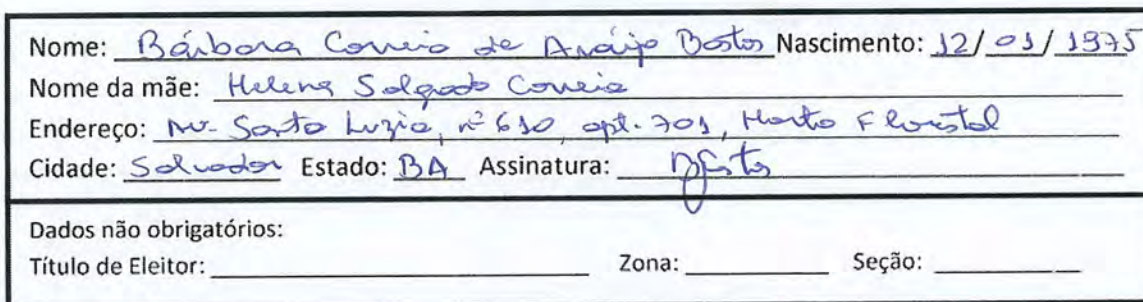 Nome: Bárbara Correia de Araújo Bastos Nascimento: 12/01/1975
Nome da mãe: Helena Salgado Correia
Endereço: Av. Santa Luzia, nº 610, apt. 701, Horto Florestal
Cidade: Salvador Estado: BA Assinatura:
Dados não obrigatórios:
Título de Eleitor: Zona: Seção: